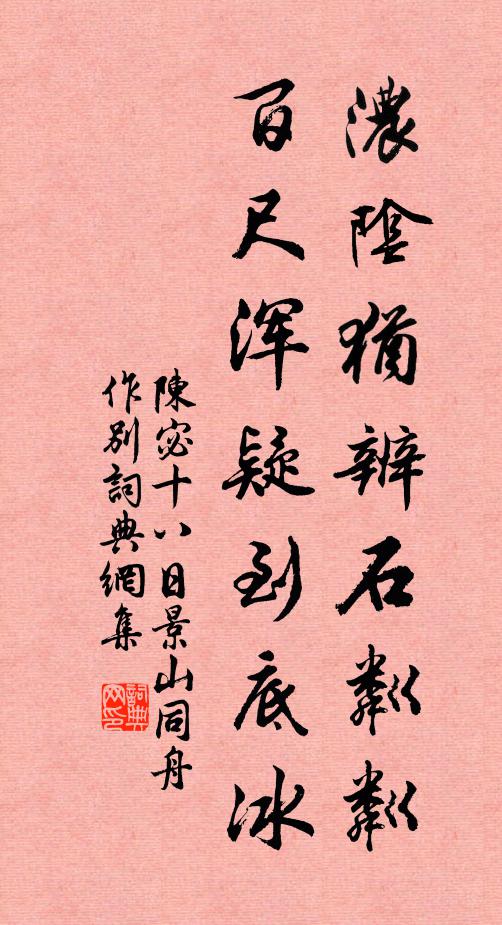 濃陰猶辨石粼粼
百尺渾疑到底冰
陳宓十八日景山同舟
作別詞典網集
詞典网印